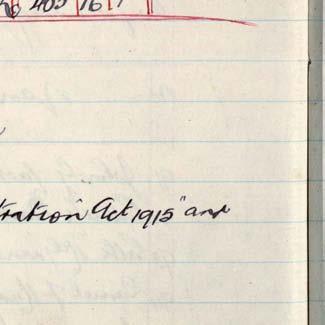 403 16
tration Act 1915" and